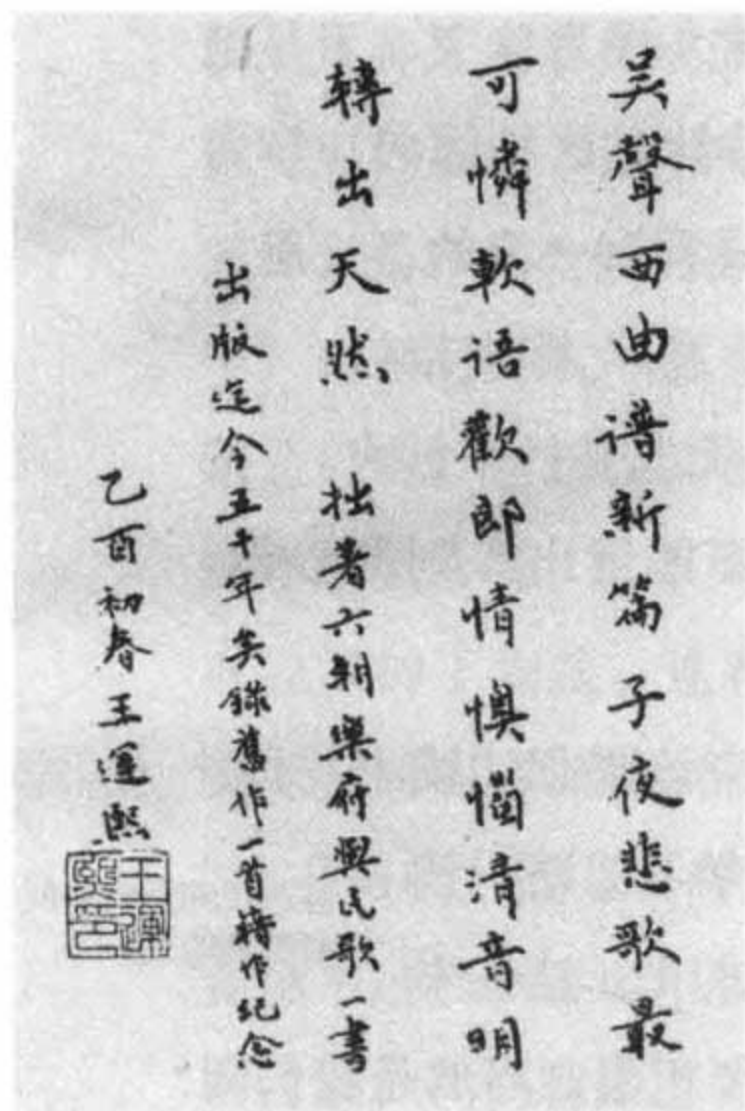 吳聲西曲谱新篇子夜悲歌最
可憐軟语歡郎情懊惱清音明
轉出天然 拙著六朝樂府與民歌一書
出版迄今五十年矣錄舊作一首藉作纪念
乙酉初春王運熙
王運熙印